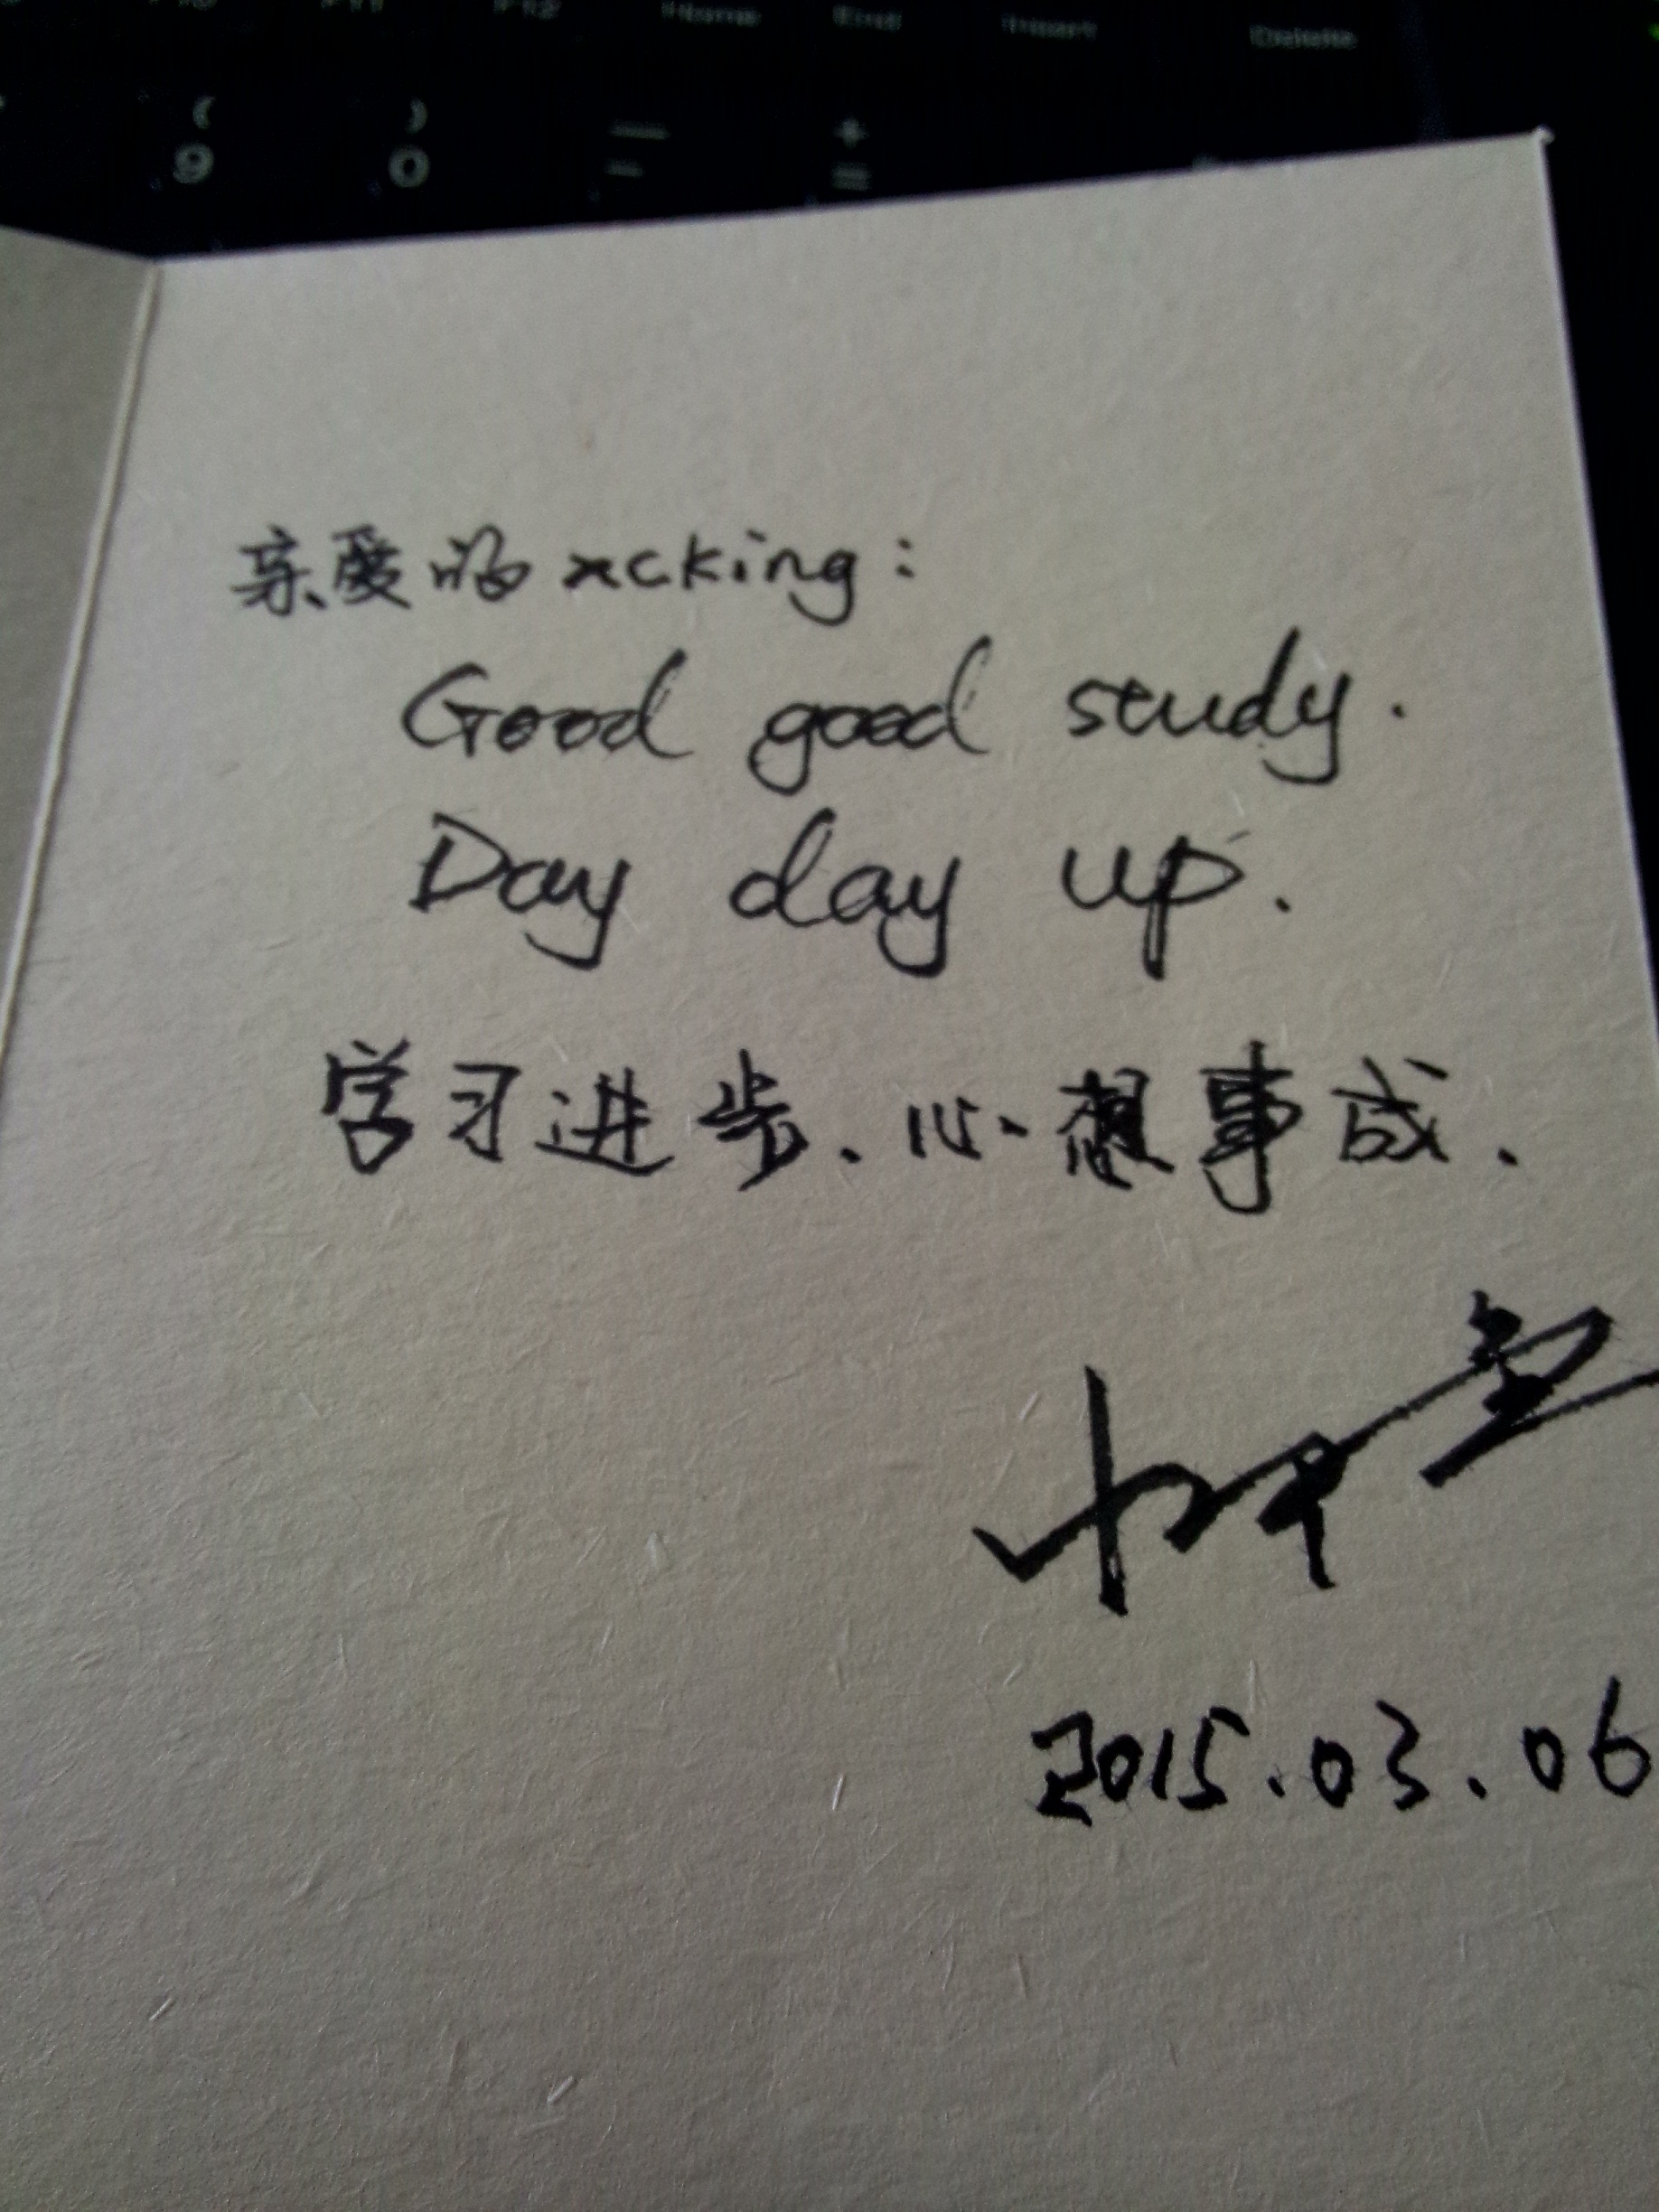 亲爱的xcking:
Good good study.
Day day up.
学习进步.心想事成.
2015.03.06
9 (
0 )
- _
= +
Home
End
Insert
Delete